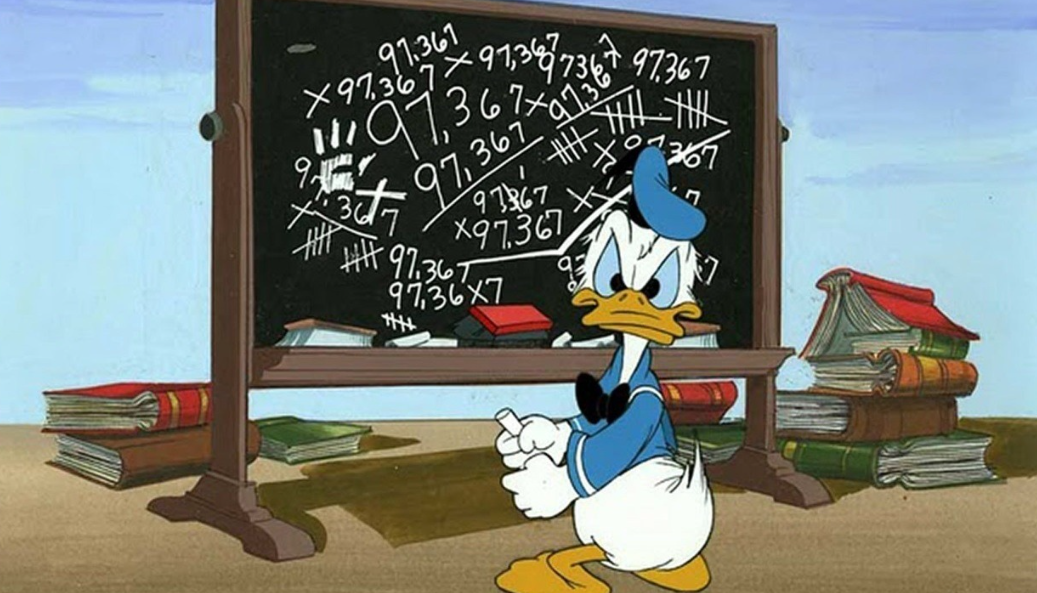 97,367
× 97,367
97367
97,367
× 97,367
97,367
× 97,36
97,367
97,367
× 97,367
367
97,36
97,36×7